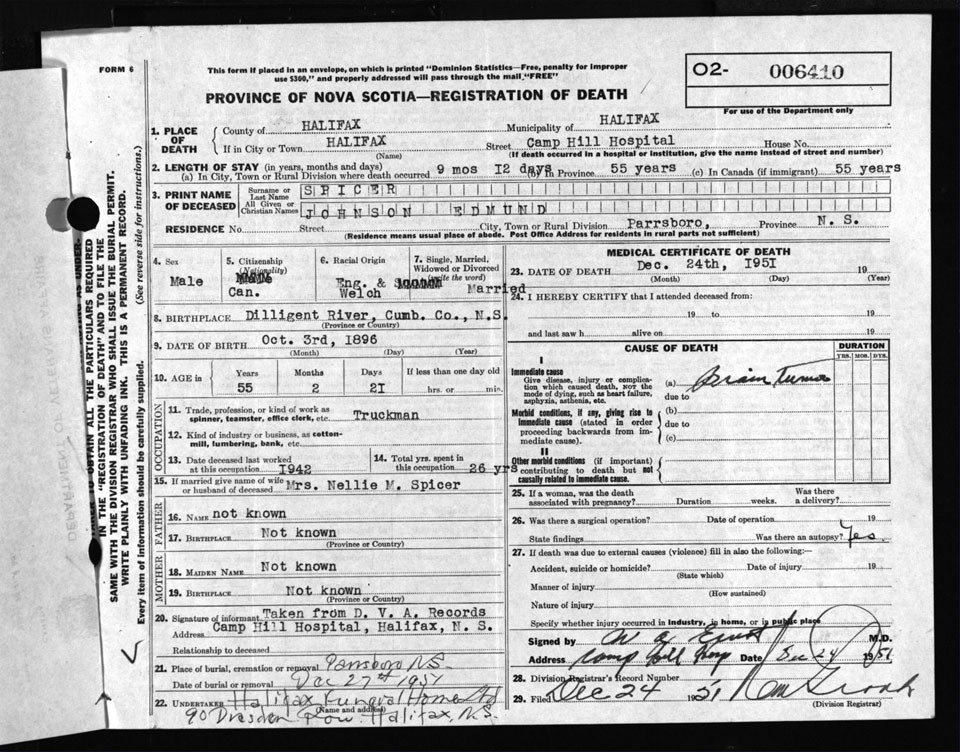 FORM 6
This form if placed in an envelope, on which is printed "Dominion Statistics—Free, penalty for improper
use $300," and properly addressed will pass through the mail "FREE"
PROVINCE OF NOVA SCOTIA—REGISTRATION OF DEATH
O2- 006410
For use of the Department only
1. PLACE OF DEATH
County of HALIFAX Municipality of HALIFAX
If in City or Town HALIFAX Street Camp Hill Hospital House No.
(Name) (If death occurred in a hospital or institution, give the name instead of street and number)
2. LENGTH OF STAY (in years, months and days)
(a) In City, Town or Rural Division where death occurred 9 mos I2 days (b) In Province 55 years (c) In Canada (if immigrant) 55 years
3. PRINT NAME OF DECEASED
Surname or Last Name SPICER
All Given or Christian Names JOHNSON EDMUND
RESIDENCE No. Street City, Town or Rural Division Parrsboro, Province N. S.
(Residence means usual place of abode. Post Office Address for residents in rural parts not sufficient)
4. Sex Male
5. Citizenship (Nationality) Can.
6. Racial Origin Eng. & Welch
7. Single, Married, Widowed or Divorced (write the word) Married
8. BIRTHPLACE Dilligent River, Cumb. Co., N.S.
(Province or Country)
9. DATE OF BIRTH Oct. 3rd, 1896
(Month) (Day) (Year)
10. AGE in Years Months Days If less than one day old
55 2 2I hrs. or min.
OCCUPATION
11. Trade, profession, or kind of work as spinner, teamster, office clerk, etc. Truckman
12. Kind of industry or business, as cotton-mill, lumbering, bank, etc.
13. Date deceased last worked at this occupation I942
14. Total yrs. spent in this occupation 26 yrs
15. If married give name of wife or husband of deceased Mrs. Nellie M. Spicer
FATHER
16. NAME not known
17. BIRTHPLACE Not known
(Province or Country)
MOTHER
18. MAIDEN NAME Not known
19. BIRTHPLACE Not known
(Province or Country)
20. Signature of informant Taken from D. V. A. Records
Address Camp Hill Hospital, Halifax, N. S.
Relationship to deceased
21. Place of burial, cremation or removal Parrsboro N.S.
Date of burial or removal Dec 27th 1951
22. UNDERTAKER Halifax Funeral Home Ltd
(Name and address)
90 Dresden Row Halifax, N.S.
MEDICAL CERTIFICATE OF DEATH
23. DATE OF DEATH Dec. 24th, I95I 19
(Month) (Day) (Year)
24. I HEREBY CERTIFY that I attended deceased from:
19 to 19
and last saw h alive on 19
CAUSE OF DEATH
DURATION
YRS. MOS. DYS.
I
Immediate cause
Give disease, injury or complication which caused death, NOT the mode of dying, such as heart failure, asphyxia, asthenia, etc.
(a) Brain Tumor
due to
Morbid conditions, if any, giving rise to immediate cause (stated in order proceeding backwards from immediate cause).
(b)
due to
(c)
II
Other morbid conditions (if important) contributing to death but not causally related to immediate cause.
25. If a woman, was the death associated with pregnancy? Duration weeks. Was there a delivery?
26. Was there a surgical operation? Date of operation 19
State findings Was there an autopsy? Yes.
27. If death was due to external causes (violence) fill in also the following:—
Accident, suicide or homicide? Date of injury 19
(State which)
Manner of injury
(How sustained)
Nature of injury
Specify whether injury occurred in industry, in home, or in public place
Signed by M.D.
Address Camp Hill Hosp Date Dec 24 1951
28. Division Registrar's Record Number
29. Filed Dec 24 1951
(Division Registrar)
SAME WITH THE DIVISION REGISTRAR WHO SHALL ISSUE THE BURIAL PERMIT.
WRITE PLAINLY WITH UNFADING INK. THIS IS A PERMANENT RECORD.
Every item of information should be carefully supplied. (See reverse side for instructions.)
OBTAIN ALL THE PARTICULARS REQUIRED
IN THE "REGISTRATION OF DEATH" AND TO FILE THE